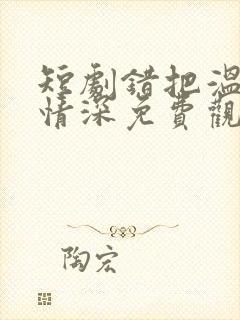 短劇錯把溫
情深免費觀
陶宏